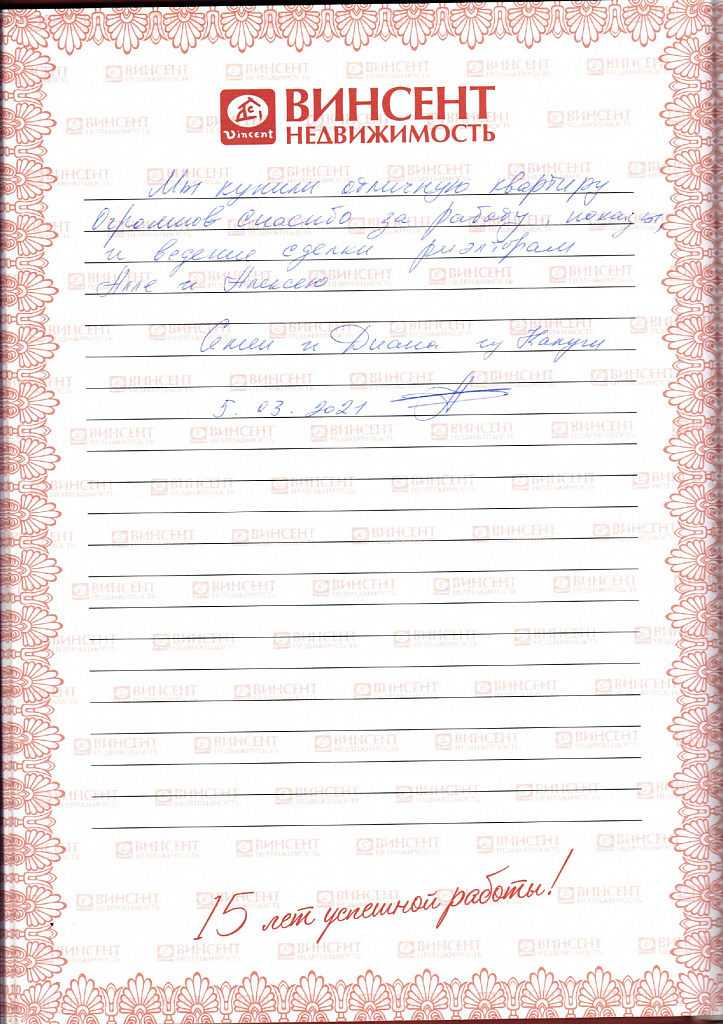 Vincent
ВИНСЕНТ
НЕДВИЖИМОСТЬ
Мы купили отличную квартиру
Огромное спасибо за работу, показы,
и ведение сделки риэлторам
Алле и Алексею
Семен и Диана из Калуги
5.03.2021
15 лет успешной работы!